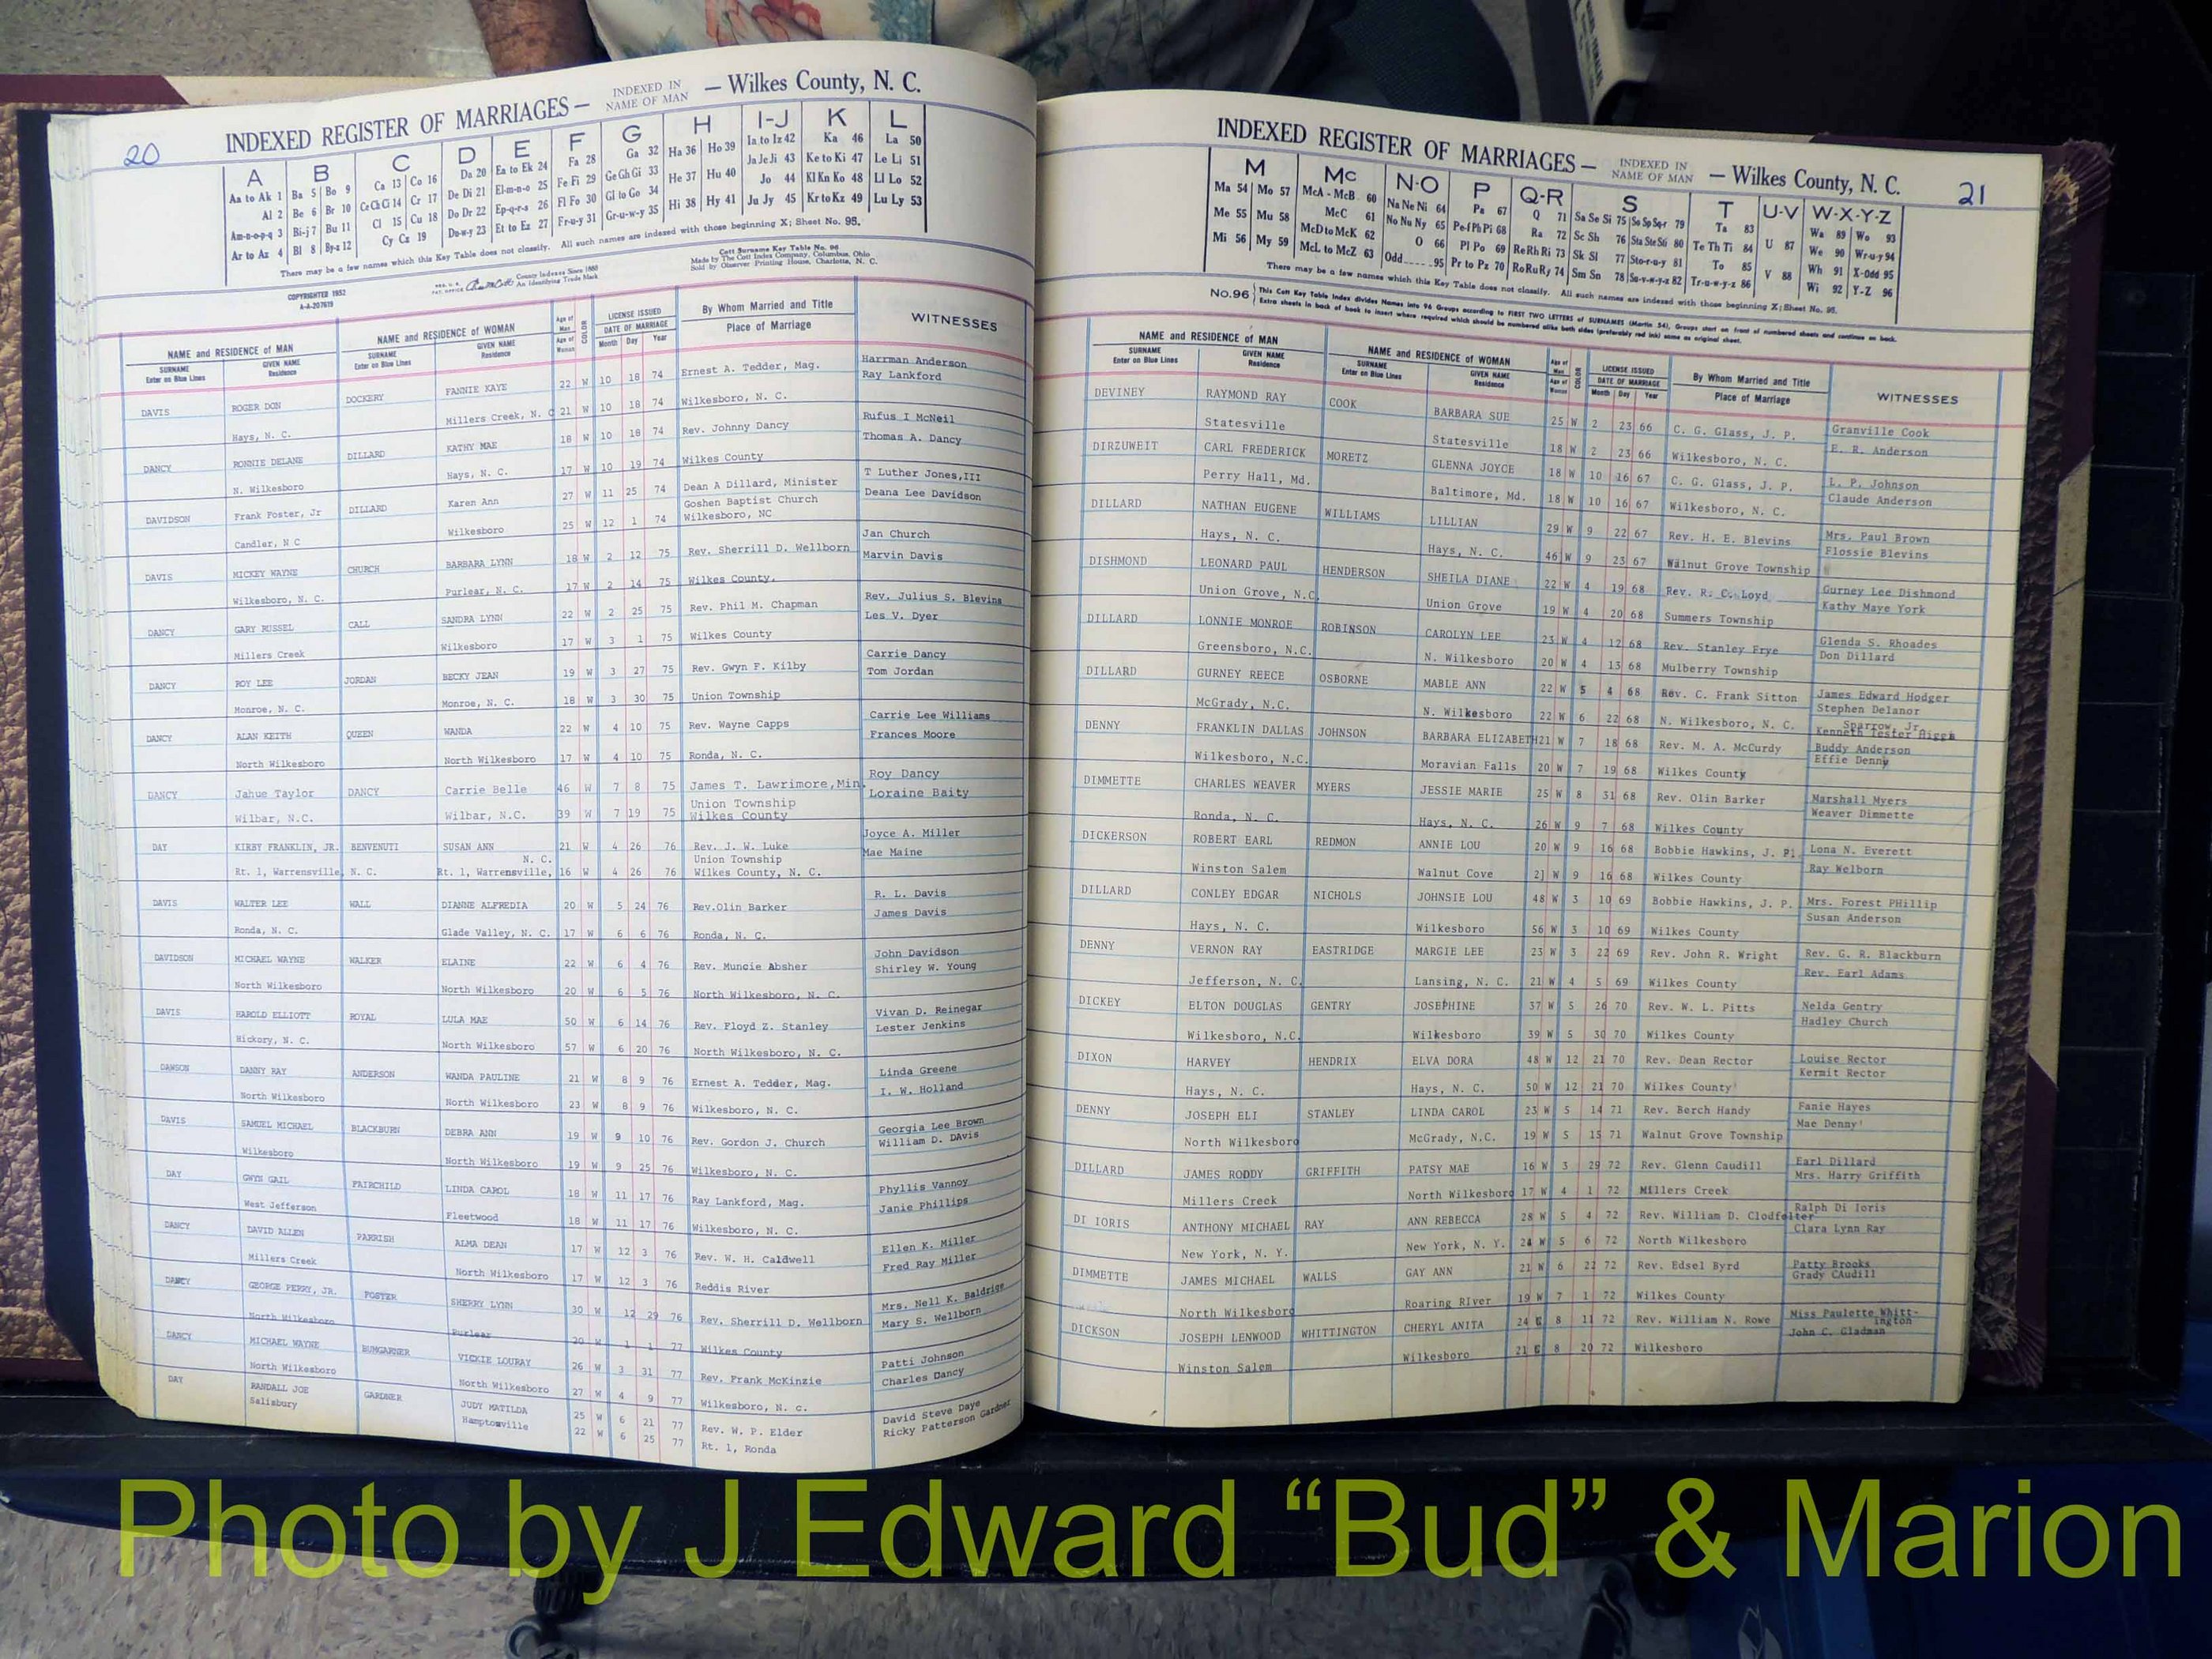 20
INDEXED REGISTER OF MARRIAGES — INDEXED IN NAME OF MAN — Wilkes County, N. C.
A B C D E F G H I-J K L
Aa to Ak 1 Ba 5 Bo 9 Ca 13 Co 16 Da 20 Ea to Ek 24 Fa 28 Ga 32 Ha 36 Ho 39 Ia to Iz 42 Ka 46 La 50
Al 2 Be 6 Br 10 Ce Ch Ci 14 Cr 17 De Di 21 El-m-n-o 25 Fe Fi 29 Ge Gh Gi 33 He 37 Hu 40 Ja Je Ji 43 Ke to Ki 47 Le Li 51
Am-n-o-p-q 3 Bi-j 7 Bu 11 Cl 15 Cu 18 Do Dr 22 Ep-q-r-s 26 Fl Fo 30 Gl to Go 34 Hi 38 Hy 41 Jo 44 Kl Kn Ko 48 Ll Lo 52
Ar to Az 4 Bl 8 By-z 12 Cy Cz 19 Du-w-y 23 Et to Ez 27 Fr-u-y 31 Gr-u-w-y 35 Ju Jy 45 Kr to Kz 49 Lu Ly 53
There may be a few names which this Key Table does not classify. All such names are indexed with those beginning X; Sheet No. 95.
COPYRIGHTED 1952
A-A-207619
County Indexes Since 1888
An Identifying Trade Mark
Cott Surname Key Table No. 96
Made by The Cott Index Company, Columbus, Ohio
Sold by Observer Printing House, Charlotte, N. C.
NAME and RESIDENCE of MAN NAME and RESIDENCE of WOMAN Age of Man Age of Woman COLOR LICENSE ISSUED DATE OF MARRIAGE By Whom Married and Title Place of Marriage WITNESSES
SURNAME Enter on Blue Lines GIVEN NAME Residence SURNAME Enter on Blue Lines GIVEN NAME Residence Month Day Year
DAVIS ROGER DON DOCKERY FANNIE KAYE 22 W 10 18 74 Ernest A. Tedder, Mag. Harrman Anderson
Hays, N. C. Millers Creek, N. C 21 W 10 18 74 Wilkesboro, N. C. Ray Lankford
DANCY RONNIE DELANE DILLARD KATHY MAE 18 W 10 18 74 Rev. Johnny Dancy Rufus I McNeil
N. Wilkesboro Hays, N. C. 17 W 10 19 74 Wilkes County Thomas A. Dancy
DAVIDSON Frank Foster, Jr DILLARD Karen Ann 27 W 11 25 74 Dean A Dillard, Minister T Luther Jones,III
Goshen Baptist Church Deana Lee Davidson
Candler, N C Wilkesboro 25 W 12 1 74 Wilkesboro, NC
DAVIS MICKEY WAYNE CHURCH BARBARA LYNN 18 W 2 12 75 Rev. Sherrill D. Wellborn Jan Church
Wilkesboro, N. C. Purlear, N. C. 17 W 2 14 75 Wilkes County, Marvin Davis
DANCY GARY RUSSEL CALL SANDRA LYNN 22 W 2 25 75 Rev. Phil M. Chapman Rev. Julius S. Blevins
Millers Creek Wilkesboro 17 W 3 1 75 Wilkes County Les V. Dyer
DANCY ROY LEE JORDAN BECKY JEAN 19 W 3 27 75 Rev. Gwyn F. Kilby Carrie Dancy
Monroe, N. C. Monroe, N. C. 18 W 3 30 75 Union Township Tom Jordan
DANCY ALAN KEITH QUEEN WANDA 22 W 4 10 75 Rev. Wayne Capps Carrie Lee Williams
North Wilkesboro North Wilkesboro 17 W 4 10 75 Ronda, N. C. Frances Moore
DANCY Jahue Taylor DANCY Carrie Belle 46 W 7 8 75 James T. Lawrimore,Min. Roy Dancy
Union Township Loraine Baity
Wilbar, N.C. Wilbar, N.C. 39 W 7 19 75 Wilkes County
DAY KIRBY FRANKLIN, JR. BENVENUTI SUSAN ANN 21 W 4 26 76 Rev. J. W. Luke Joyce A. Miller
N. C. Union Township Mae Maine
Rt. 1, Warrensville, N. C. Rt. 1, Warrensville, 16 W 4 26 76 Wilkes County, N. C.
DAVIS WALTER LEE WALL DIANNE ALFREDIA 20 W 5 24 76 Rev.Olin Barker R. L. Davis
Ronda, N. C. Glade Valley, N. C. 17 W 6 6 76 Ronda, N. C. James Davis
DAVIDSON MICHAEL WAYNE WALKER ELAINE 22 W 6 4 76 Rev. Muncie Absher John Davidson
North Wilkesboro North Wilkesboro 20 W 6 5 76 North Wilkesboro, N. C. Shirley W. Young
DAVIS HAROLD ELLIOTT ROYAL LULA MAE 50 W 6 14 76 Rev. Floyd Z. Stanley Vivan D. Reinegar
Hickory, N. C. North Wilkesboro 57 W 6 20 76 North Wilkesboro, N. C. Lester Jenkins
DAWSON DANNY RAY ANDERSON WANDA PAULINE 21 W 8 9 76 Ernest A. Tedder, Mag. Linda Greene
North Wilkesboro North Wilkesboro 23 W 8 9 76 Wilkesboro, N. C. I. W. Holland
DAVIS SAMUEL MICHAEL BLACKBURN DEBRA ANN 19 W 9 10 76 Rev. Gordon J. Church Georgia Lee Brown
Wilkesboro North Wilkesboro 19 W 9 25 76 Wilkesboro, N. C. William D. DAvis
DAY GWYN GAIL FAIRCHILD LINDA CAROL 18 W 11 17 76 Ray Lankford, Mag. Phyllis Vannoy
West Jefferson Fleetwood 18 W 11 17 76 Wilkesboro, N. C. Janie Phillips
DANCY DAVID ALLEN PARRISH ALMA DEAN 17 W 12 3 76 Rev. W. H. Caldwell Ellen K. Miller
Millers Creek North Wilkesboro 17 W 12 3 76 Reddis River Fred Ray Miller
DANCY GEORGE PERRY, JR. FOSTER SHERRY LYNN 30 W 12 29 76 Rev. Sherrill D. Wellborn Mrs. Nell K. Baldrige
North Wilkesboro Purlear 20 W 1 1 77 Wilkes County Mary S. Wellborn
DANCY MICHAEL WAYNE BUMGARNER VICKIE LOURAY 26 W 3 31 77 Rev. Frank McKinzie Patti Johnson
North Wilkesboro North Wilkesboro 27 W 4 9 77 Wilkesboro, N. C. Charles Dancy
DAY RANDALL JOE GARDNER JUDY MATILDA 25 W 6 21 77 Rev. W. P. Elder David Steve Daye
Salisbury Hamptonville 22 W 6 25 77 Rt. 1, Ronda Ricky Patterson Gardner
INDEXED REGISTER OF MARRIAGES — INDEXED IN NAME OF MAN — Wilkes County, N. C.
21
M Mc N-O P Q-R S T U-V W-X-Y-Z
Ma 54 Mo 57 McA - McB 60 Na Ne Ni 64 Pa 67 Q 71 Sa Se Si 75 So Sp Sq-r 79 Ta 83 Wa 89 Wo 93
Me 55 Mu 58 McC 61 No Nu Ny 65 Pe-f Ph Pi 68 Ra 72 Sc Sh 76 Sta Ste Sti 80 Te Th Ti 84 U 87 We 90 Wr-u-y 94
Mi 56 My 59 McD to McK 62 O 66 Pl Po 69 Re Rh Ri 73 Sk Sl 77 Sto-r-u-y 81 To 85 V 88 Wh 91 X-Odd 95
McL to McZ 63 Odd 95 Pr to Pz 70 Ro Ru Ry 74 Sm Sn 78 Su-v-w-y-z 82 Tr-u-w-y-z 86 Wi 92 Y-Z 96
There may be a few names which this Key Table does not classify. All such names are indexed with those beginning X; Sheet No. 95.
No.96 This Cott Key Table Index divides Names into 96 Groups according to FIRST TWO LETTERS of SURNAMES (Martin 54), Groups start on front of numbered sheets and continue on back.
Extra sheets in back of book to insert where required which should be numbered alike both sides (preferably red ink) same as original sheet.
NAME and RESIDENCE of MAN NAME and RESIDENCE of WOMAN Age of Man Age of Woman COLOR LICENSE ISSUED DATE OF MARRIAGE By Whom Married and Title Place of Marriage WITNESSES
SURNAME Enter on Blue Lines GIVEN NAME Residence SURNAME Enter on Blue Lines GIVEN NAME Residence Month Day Year
DEVINEY RAYMOND RAY COOK BARBARA SUE 25 W 2 23 66 C. G. Glass, J. P. Granville Cook
Statesville Statesville 18 W 2 23 66 Wilkesboro, N. C. E. R. Anderson
DIRZUWEIT CARL FREDERICK MORETZ GLENNA JOYCE 18 W 10 16 67 C. G. Glass, J. P. L. P. Johnson
Perry Hall, Md. Baltimore, Md. 18 W 10 16 67 Wilkesboro, N. C. Claude Anderson
DILLARD NATHAN EUGENE WILLIAMS LILLIAN 29 W 9 22 67 Rev. H. E. Blevins Mrs. Paul Brown
Hays, N. C. Hays, N. C. 46 W 9 23 67 Walnut Grove Township Flossie Blevins
DISHMOND LEONARD PAUL HENDERSON SHEILA DIANE 22 W 4 19 68 Rev. R. C. Loyd Gurney Lee Dishmond
Union Grove, N.C. Union Grove 19 W 4 20 68 Summers Township Kathy Maye York
DILLARD LONNIE MONROE ROBINSON CAROLYN LEE 23 W 4 12 68 Rev. Stanley Frye Glenda S. Rhoades
Greensboro, N.C. N. Wilkesboro 20 W 4 13 68 Mulberry Township Don Dillard
DILLARD GURNEY REECE OSBORNE MABLE ANN 22 W 5 4 68 Rev. C. Frank Sitton James Edward Hodger
Stephen Delanor
McGrady, N.C. N. Wilkesboro 22 W 6 22 68 N. Wilkesboro, N. C. Sparrow, Jr.
Kenneth Tester Higgs
DENNY FRANKLIN DALLAS JOHNSON BARBARA ELIZABETH 21 W 7 18 68 Rev. M. A. McCurdy Buddy Anderson
Wilkesboro, N.C. Moravian Falls 20 W 7 19 68 Wilkes County Effie Denny
DIMMETTE CHARLES WEAVER MYERS JESSIE MARIE 25 W 8 31 68 Rev. Olin Barker Marshall Myers
Ronda, N. C. Hays, N. C. 26 W 9 7 68 Wilkes County Weaver Dimmette
DICKERSON ROBERT EARL REDMON ANNIE LOU 20 W 9 16 68 Bobbie Hawkins, J. P. Lona N. Everett
Winston Salem Walnut Cove 21 W 9 16 68 Wilkes County Ray Welborn
DILLARD CONLEY EDGAR NICHOLS JOHNSIE LOU 48 W 3 10 69 Bobbie Hawkins, J. P. Mrs. Forest PHillip
Hays, N. C. Wilkesboro 56 W 3 10 69 Wilkes County Susan Anderson
DENNY VERNON RAY EASTRIDGE MARGIE LEE 23 W 3 22 69 Rev. John R. Wright Rev. G. R. Blackburn
Jefferson, N. C. Lansing, N. C. 21 W 4 5 69 Wilkes County Rev. Earl Adams
DICKEY ELTON DOUGLAS GENTRY JOSEPHINE 37 W 5 26 70 Rev. W. L. Pitts Nelda Gentry
Wilkesboro, N.C. Wilkesboro 39 W 5 30 70 Wilkes County Hadley Church
DIXON HARVEY HENDRIX ELVA DORA 48 W 12 21 70 Rev. Dean Rector Louise Rector
Hays, N. C. Hays, N. C. 50 W 12 21 70 Wilkes County Kermit Rector
DENNY JOSEPH ELI STANLEY LINDA CAROL 23 W 5 14 71 Rev. Berch Handy Fanie Hayes
North Wilkesboro McGrady, N.C. 19 W 5 15 71 Walnut Grove Township Mae Denny
DILLARD JAMES RODDY GRIFFITH PATSY MAE 16 W 3 29 72 Rev. Glenn Caudill Earl Dillard
Millers Creek North Wilkesboro 17 W 4 1 72 Millers Creek Mrs. Harry Griffith
DI IORIS ANTHONY MICHAEL RAY ANN REBECCA 28 W 5 4 72 Rev. William D. Clodfelter Ralph Di Ioris
New York, N. Y. New York, N. Y. 24 W 5 6 72 North Wilkesboro Clara Lynn Ray
DIMMETTE JAMES MICHAEL WALLS GAY ANN 21 W 6 22 72 Rev. Edsel Byrd Patty Brooks
Grady CAudill
North Wilkesboro Roaring RIver 19 W 7 1 72 Wilkes County
DICKSON JOSEPH LENWOOD WHITTINGTON CHERYL ANITA 24 C 8 11 72 Rev. William N. Rowe Miss Paulette Whitt-
ington
Winston Salem Wilkesboro 21 C 8 20 72 Wilkesboro John C. Gladman
Photo by J Edward “Bud” & Marion